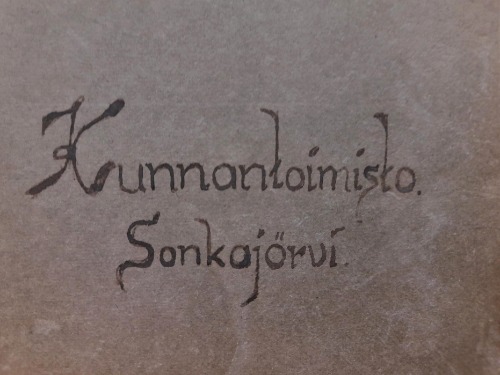 Kunnantoimisto.
Sonkajörvi.